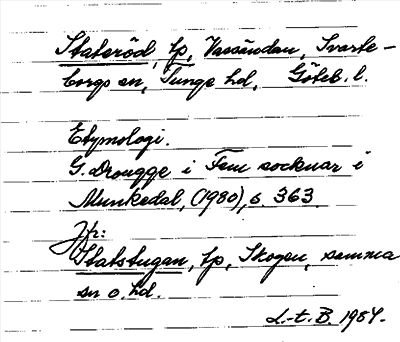 Statsröd, tp, Vassändan, Svarte-
borgs sn, Tunge hd, Göteb. l.
Etymologi.
G. Drougge i Fem socknar i
Munkedal, (1980), s. 363.
Jfr:
Statstugan, tp, Skogen, samma
sn o. hd.
L.-t. B. 1984.